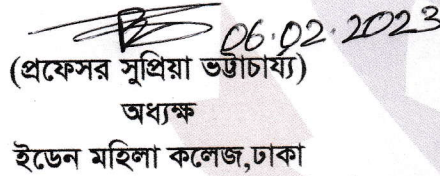 06.02.2023
(প্রফেসর সুপ্রিয়া ভট্টাচার্য্য)
অধ্যক্ষ
ইডেন মহিলা কলেজ,ঢাকা